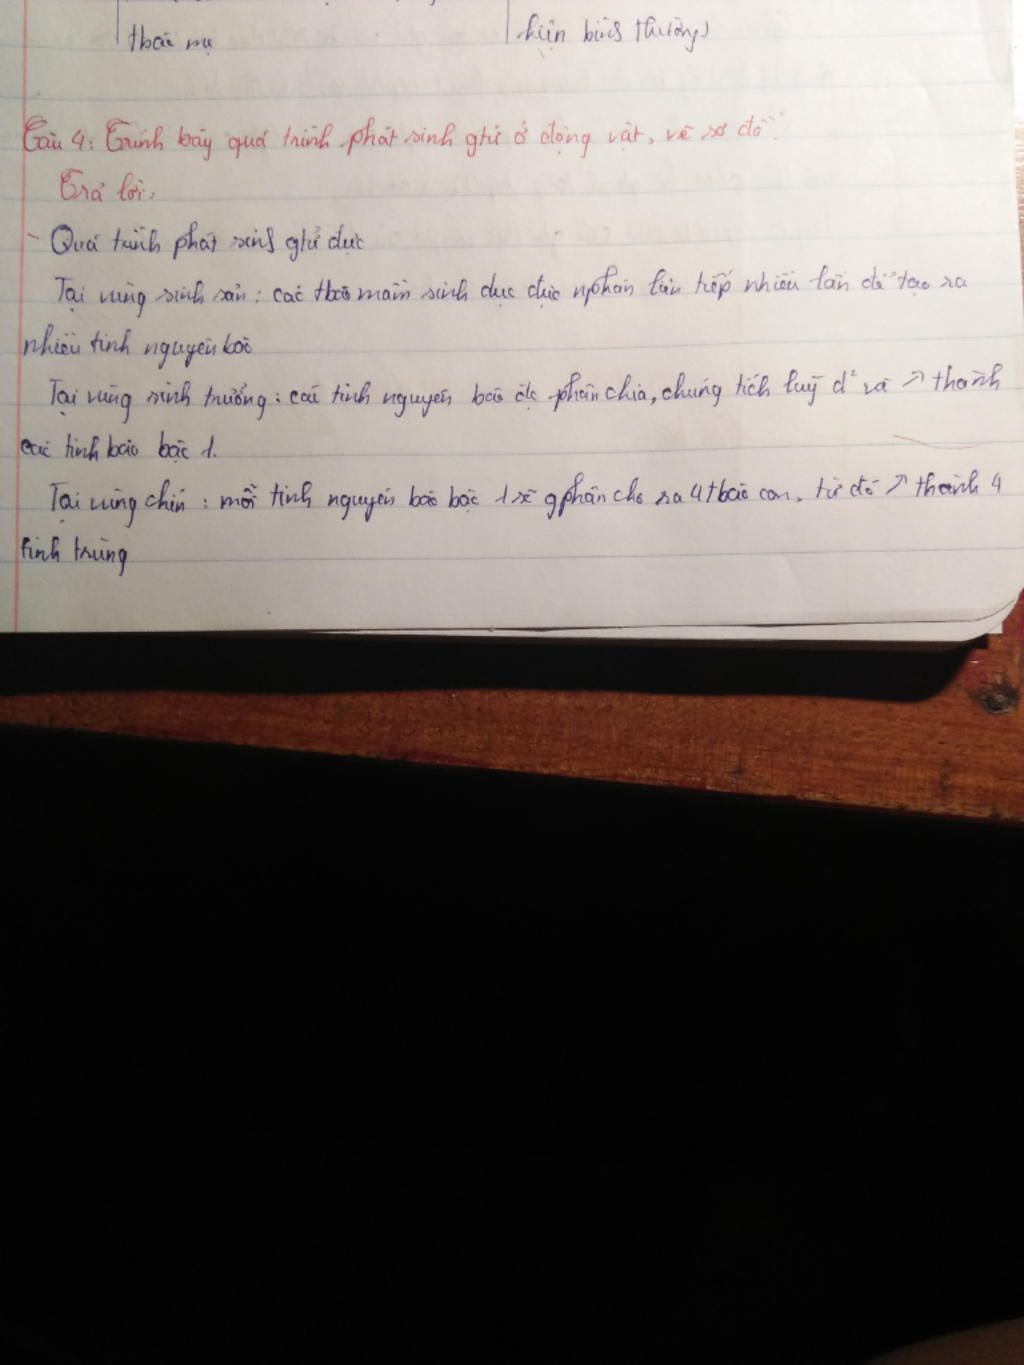 tbào mẹ
kiện bình thường)
Câu 4: Trình bày quá trình phát sinh gtử ở động vật, vẽ sơ đồ.
Trả lời:
- Quá trình phát sinh gtử đực
Tại vùng sinh sản: các tbào mầm sinh dục đực nphân liên tiếp nhiều lần để tạo ra
nhiều tinh nguyên bào
Tại vùng sinh trưởng: các tinh nguyên bào đc phân chia, chúng tích luỹ d² và ↗ thành
các tinh bào bậc 1.
Tại vùng chín: mỗi tinh nguyên bào bậc 1 sẽ gphân cho ra 4 tbào con, từ đó ↗ thành 4
tinh trùng